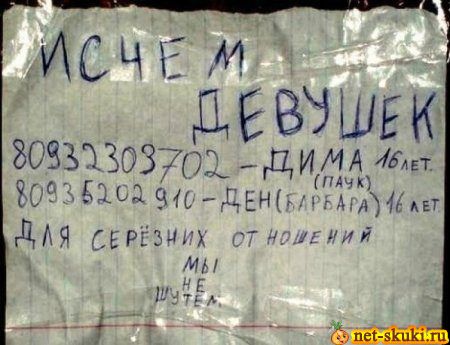 ИСЧЕМ
ДЕВУШЕК
80932303702 - ДИМА 16 ЛЕТ.
(ПАУК)
80935202910 - ДЕН (БАРБАРА) 16 ЛЕТ.
ДЛЯ СЕРЁЗНИХ ОТНОШЕНИЙ
МЫ
НЕ
ШУТЕМ
net-skuki.ru